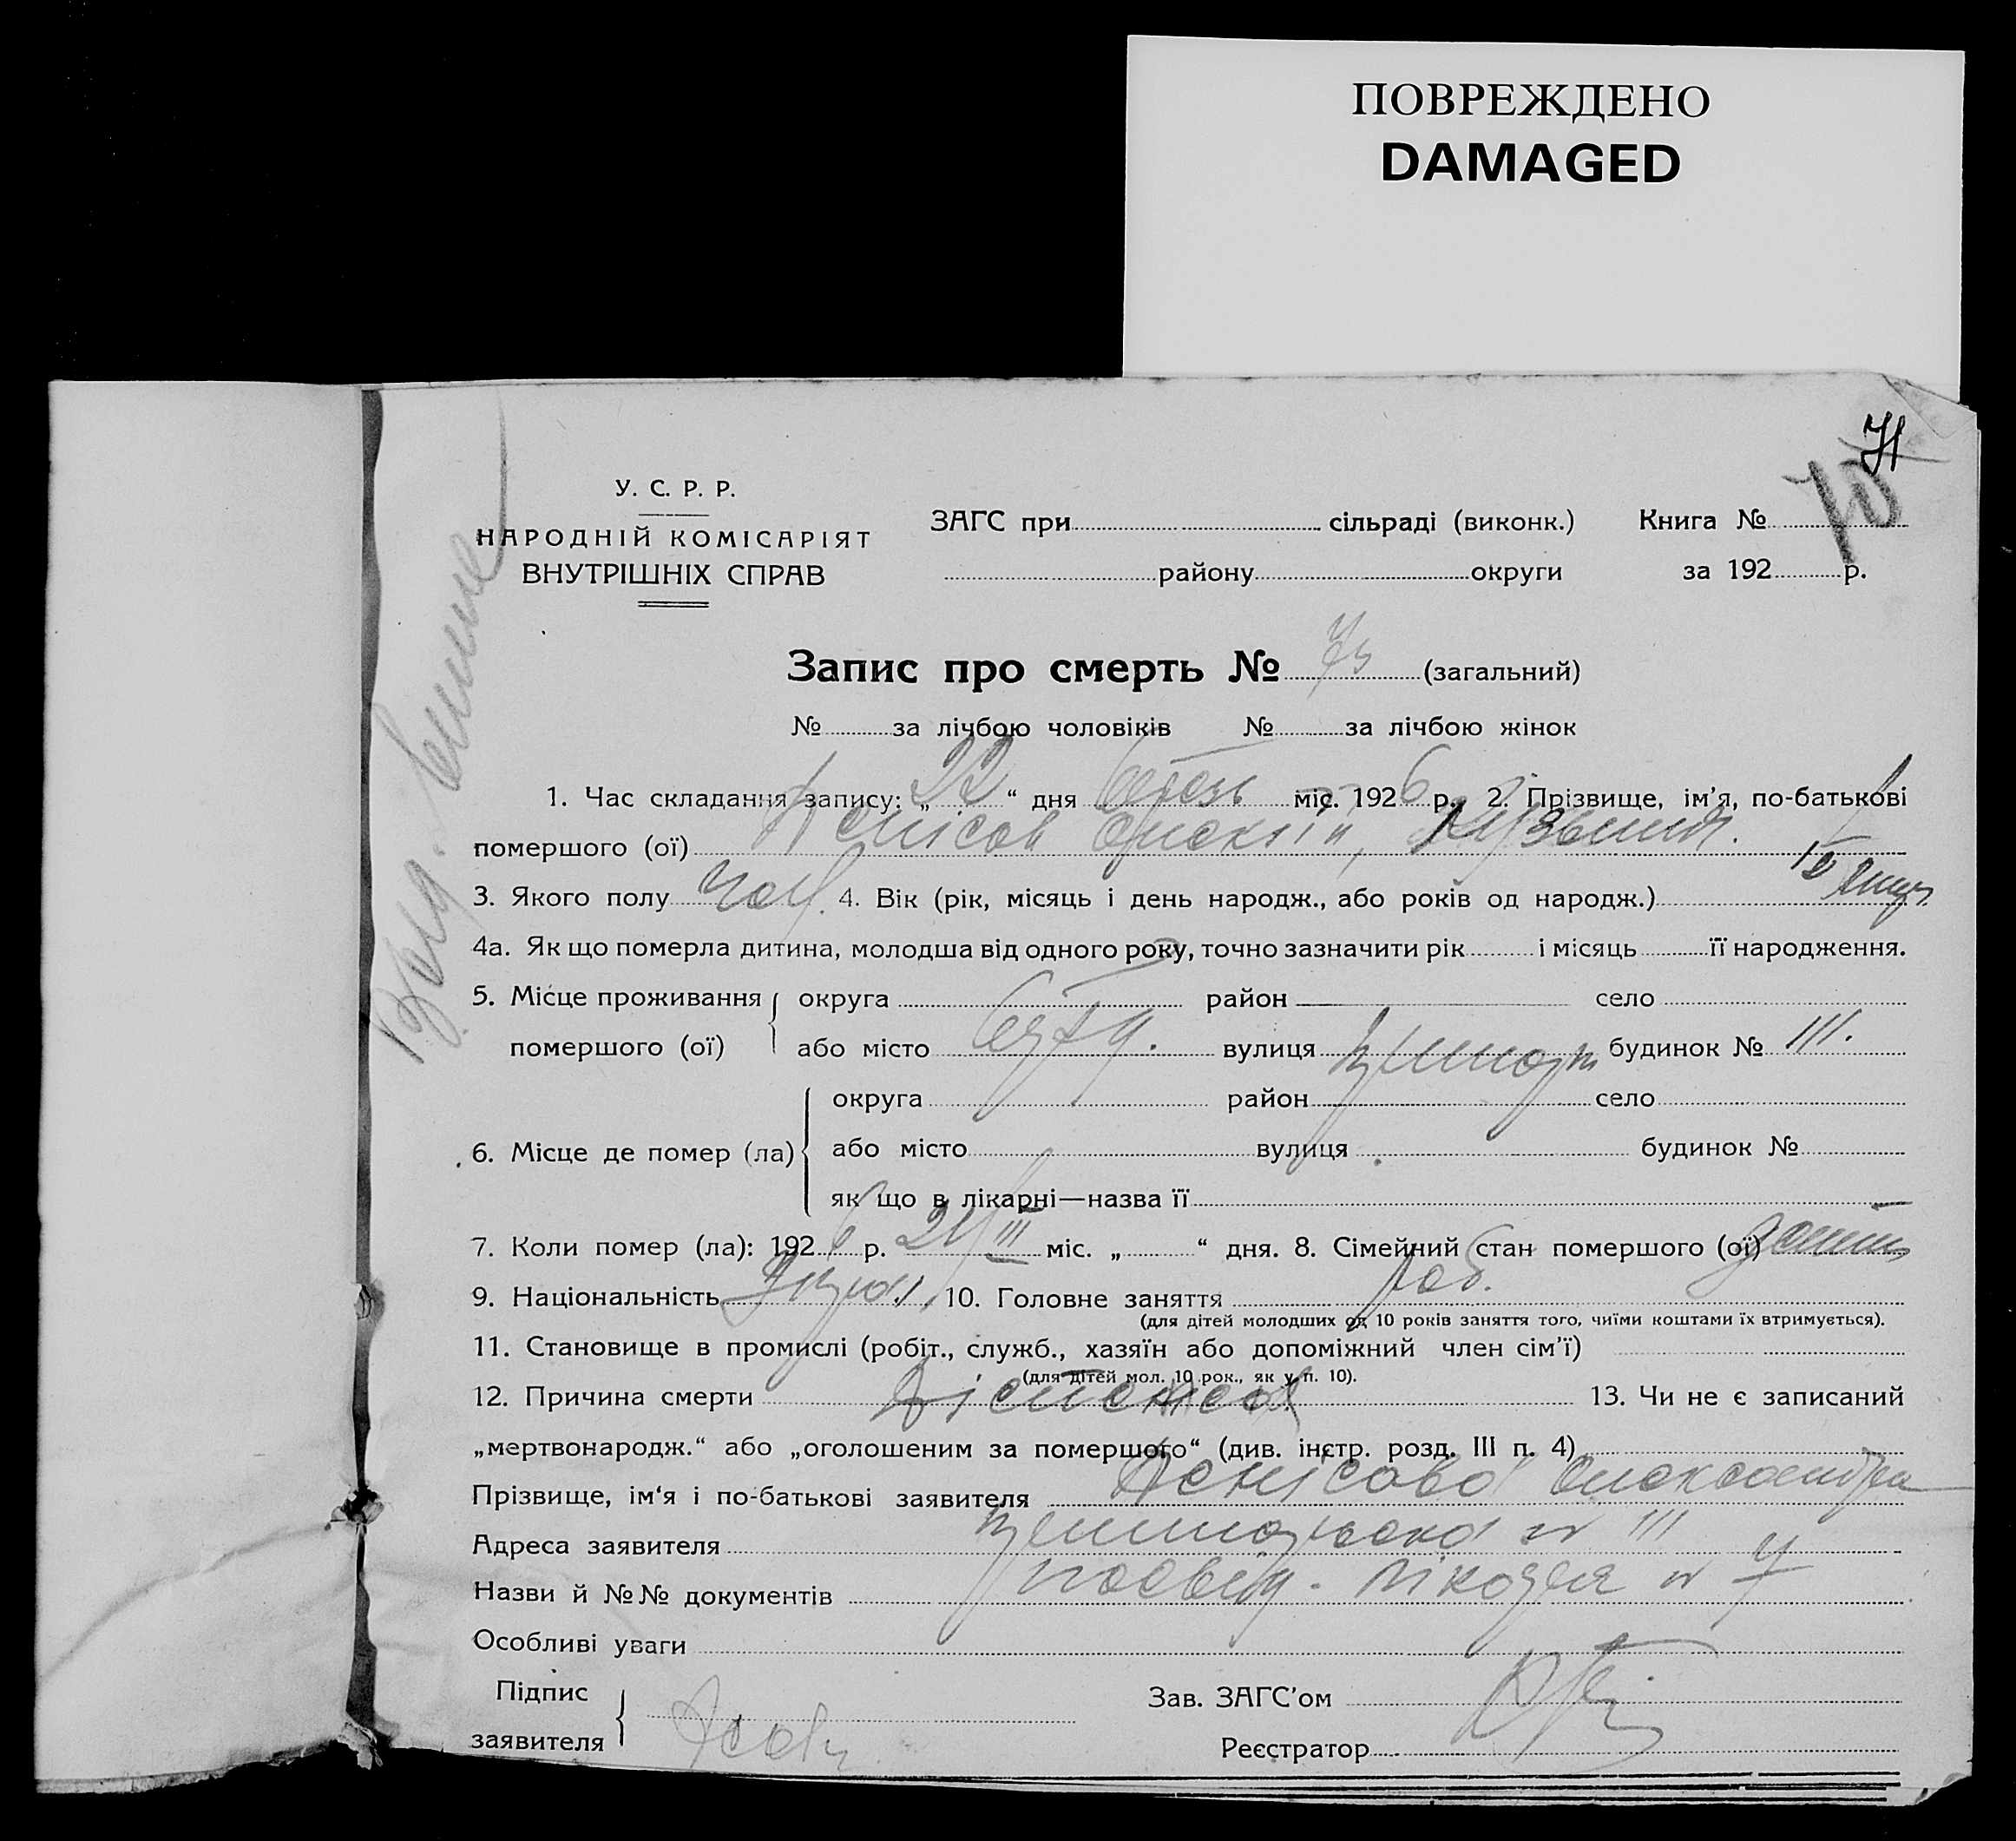 ПОВРЕЖДЕНО
DAMAGED
71
70
У. С. Р. Р.
НАРОДНІЙ КОМІСАРІЯТ
ВНУТРІШНІХ СПРАВ
ЗАГС при сільраді (виконк.) Книга №
району округи за 192 р.
Запис про смерть № 73 (загальний)
№ за лічбою чоловіків № за лічбою жінок
1. Час складання запису: „ 22 “ дня міс. 1926 р. 2. Прізвище, ім’я, по-батькові
помершого (ої) Денісов Олексій,
3. Якого полу чол. 4. Вік (рік, місяць і день народж., або років од народж.)
4а. Як що померла дитина, молодша від одного року, точно зазначити рік і місяць її народження.
5. Місце проживання округа район село
помершого (ої) або місто вулиця будинок № 111.
округа район село
6. Місце де помер (ла) або місто вулиця будинок №
як що в лікарні—назва її
7. Коли помер (ла): 1926 р. 21/III міс. „ “ дня. 8. Сімейний стан помершого (ої)
9. Національність Укр. 10. Головне заняття роб.
(для дітей молодших од 10 років заняття того, чиїми коштами їх втримується).
11. Становище в промислі (робіт., служб., хазяїн або допоміжний член сім’ї)
(для дітей мол. 10 рок., як у п. 10).
12. Причина смерти 13. Чи не є записаний
„мертвонародж.“ або „оголошеним за помершого“ (див. інстр. розд. III п. 4)
Прізвище, ім‘я і по-батькові заявителя Денісова Олександра
Адреса заявителя № 111
Назви й №№ документів посвід. лікаря №
Особливі уваги
Підпис
заявителя
Зав. ЗАГС’ом
Реєстратор